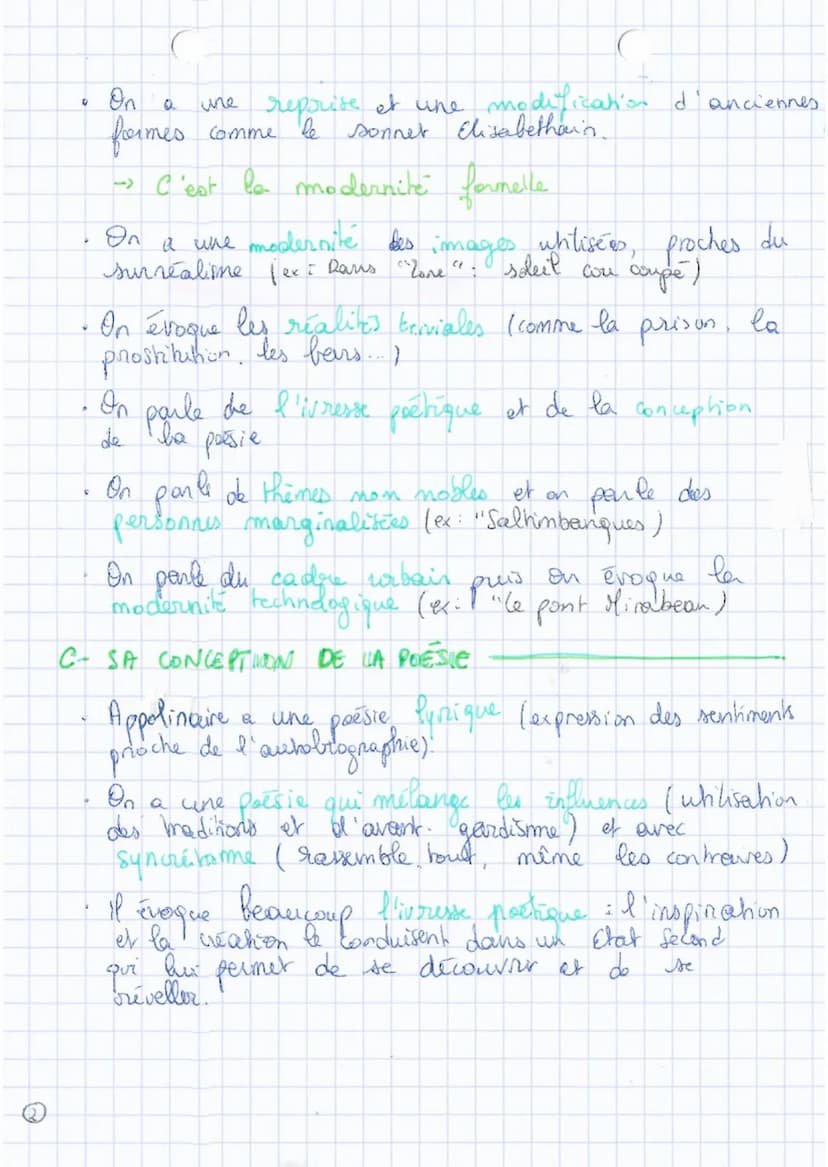 • On a une reprise et une modification d'anciennes
formes comme le sonnet Elisabethain.
-> C'est la modernité formelle
• On a une modernité des images utilisées, proches du
surréalisme (ex: Dans "Zone": soleil cou coupé)
• On évoque les réalités triviales (comme la prison, la
prostitution, les bars...)
• On parle de l'ivresse poétique et de la conception
de la poésie
• On parle de thèmes non nobles et on parle des
personnes marginalisées (ex: "Saltimbanques)
• On parle du cadre urbain puis on évoque la
modernité technologique (ex: "le pont Mirabeau)
C- SA CONCEPTION DE LA POÉSIE
• Appolinaire a une poésie lyrique (expression des sentiments
proche de l'autobiographie).
• On a une poésie qui mélange les influences (utilisation
des traditions et d'avant-gardisme) et avec
syncrétisme (rassemble tout, même les contraires)
• Il évoque beaucoup l'ivresse poétique : l'inspiration
et la création le conduisent dans un Etat Second
qui lui permet de se découvrir et de se
réveller.
2